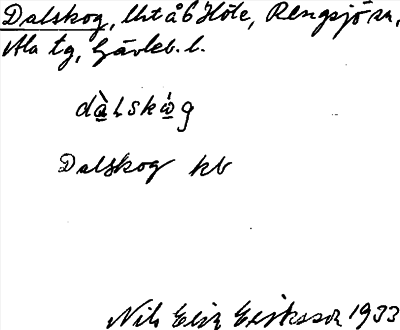 Dalskog, lht å 6 Höle, Rengsjö sn,
Ala tg, Gävleb. l.
dàlskòg
Dalskog kb
Nils Erik Eriksson 1933